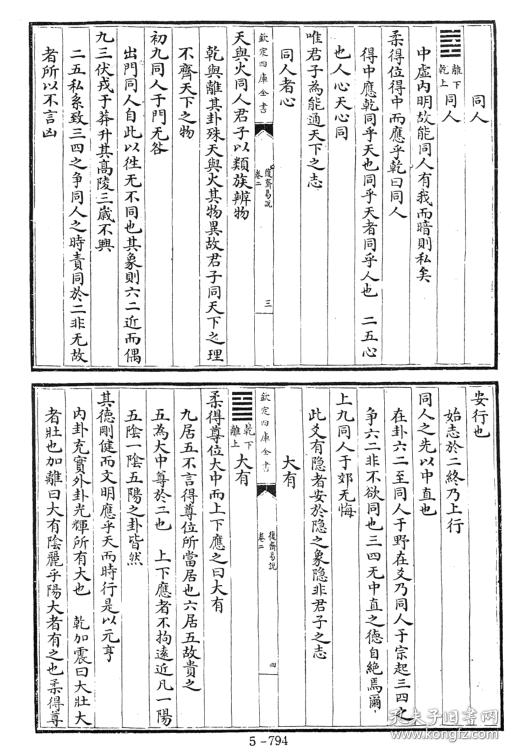 同人
離下
乾上
同人
中虚内明故能同人有我而暗則私矣
柔得位得中而應乎乾曰同人
得中應乾同乎天也同乎天者同乎人也　二五心
也人心天心同
唯君子為能通天下之志
同人者心
欽定四庫全書
復齋易說
卷二
三
天與火同人君子以類族辨物
乾與離其卦殊天與火其物異故君子同天下之理
不齊天下之物
初九同人于門无咎
出門同人自此以徃无不同也其象則六二近而偶
九三伏戎于莽升其高陵三歲不興
二五私系致三四之争同人之時責同於二非无故
者所以不言凶
安行也
始志於二終乃上行
同人之先以中直也
在卦六二至同人于野在爻乃同人于宗起三四之
争六二非不欲同也三四无中直之德自絶焉爾
上九同人于郊无悔
此爻有隐者安於隐之象隐非君子之志
大有
欽定四庫全書
復齋易說
卷二
四
乾下
離上
大有
柔得尊位大中而上下應之曰大有
九居五不言得尊位所當居也六居五故貴之
五為大中尊於二也　上下應者不拘遠近凡一陽
五陰一陰五陽之卦皆然
其德剛健而文明應乎天而時行是以元亨
内卦充實外卦光輝所有大也　乾加震曰大壯大
者壯也加離曰大有陰麗乎陽大者有之也柔得尊
5-794
孔夫子旧书网
www.kongfz.com